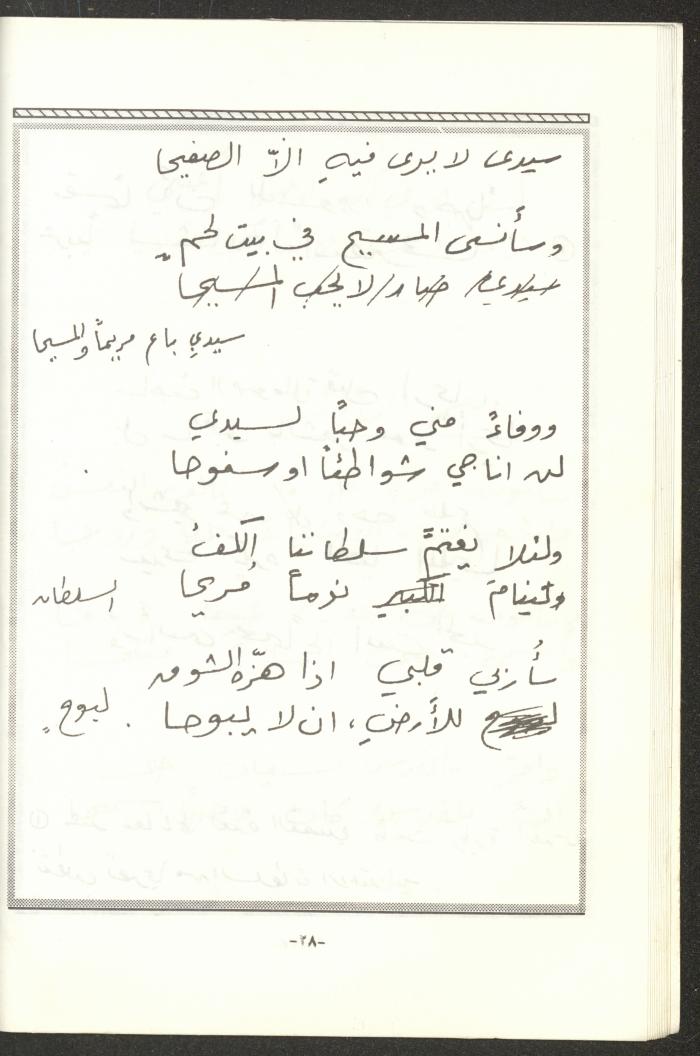 سيدى لا يرى فيهِ الاّ الصفيحا
وسأنسى المسيح في بيت لحمٍ
سيدي صار لا يحب المسيحا
سيدي باع مريماً والمسيحا
ووفاءً مني وحباً لسيدي
لن اناجي شواطئاً او سفوحا
ولئلا يغتمَّ سلطاننا الكفءُ
ولينامَ الكبير نوماً مُريحا
السلطان
سأُربي قلبي اذا هزّه الشوق
للأرضِ، ان لا يبوحا . لبوحٍ
-٢٨-